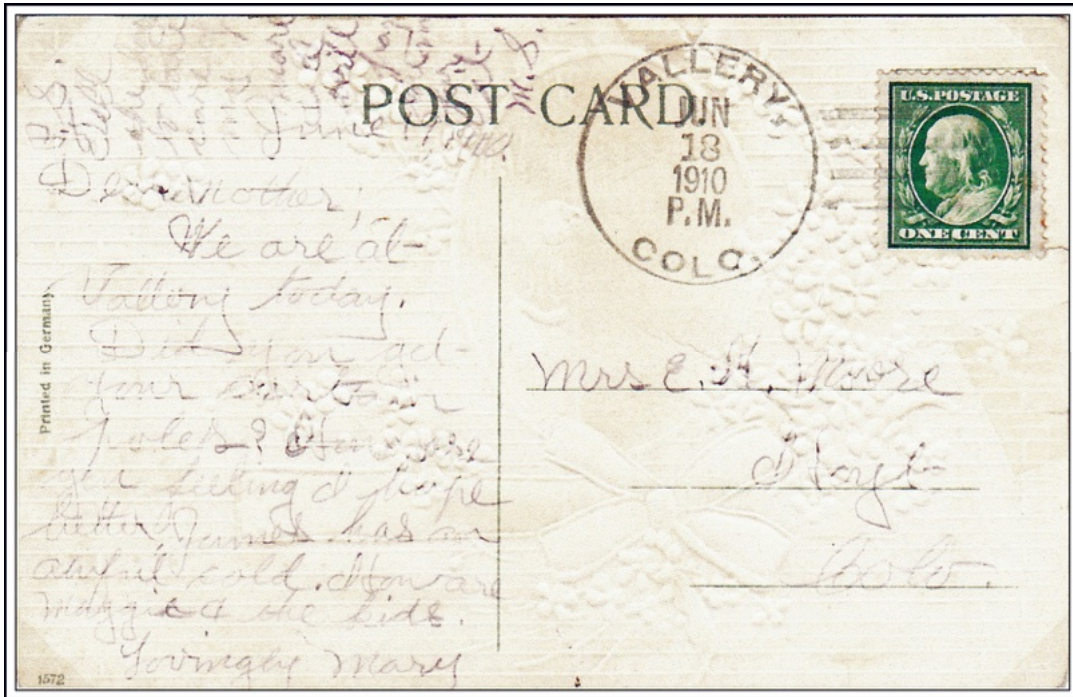 POST CARD
VALLERY
JUN
18
1910
P.M.
COLO.
U.S. POSTAGE
ONE CENT
P.S.
Tell
M.S.
June 1910.
Dear Mother,
We are at
Vallery today.
Did you get
your curtain
poles? How are
you feeling I hope
better James has an
awful cold. How are
Maggie & the kids.
Lovingly Mary
Mrs E. H. Moore
Hoyt
Colo.
Printed in Germany
1572